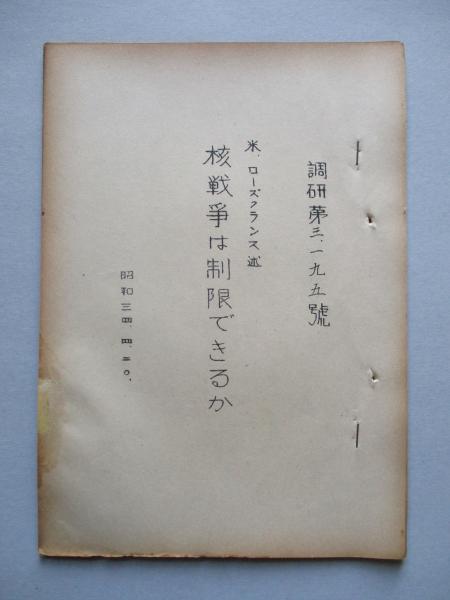 調研第三、一九五號
米、ローズクランス述
核戦爭は制限できるか
昭和三四、四、二〇、